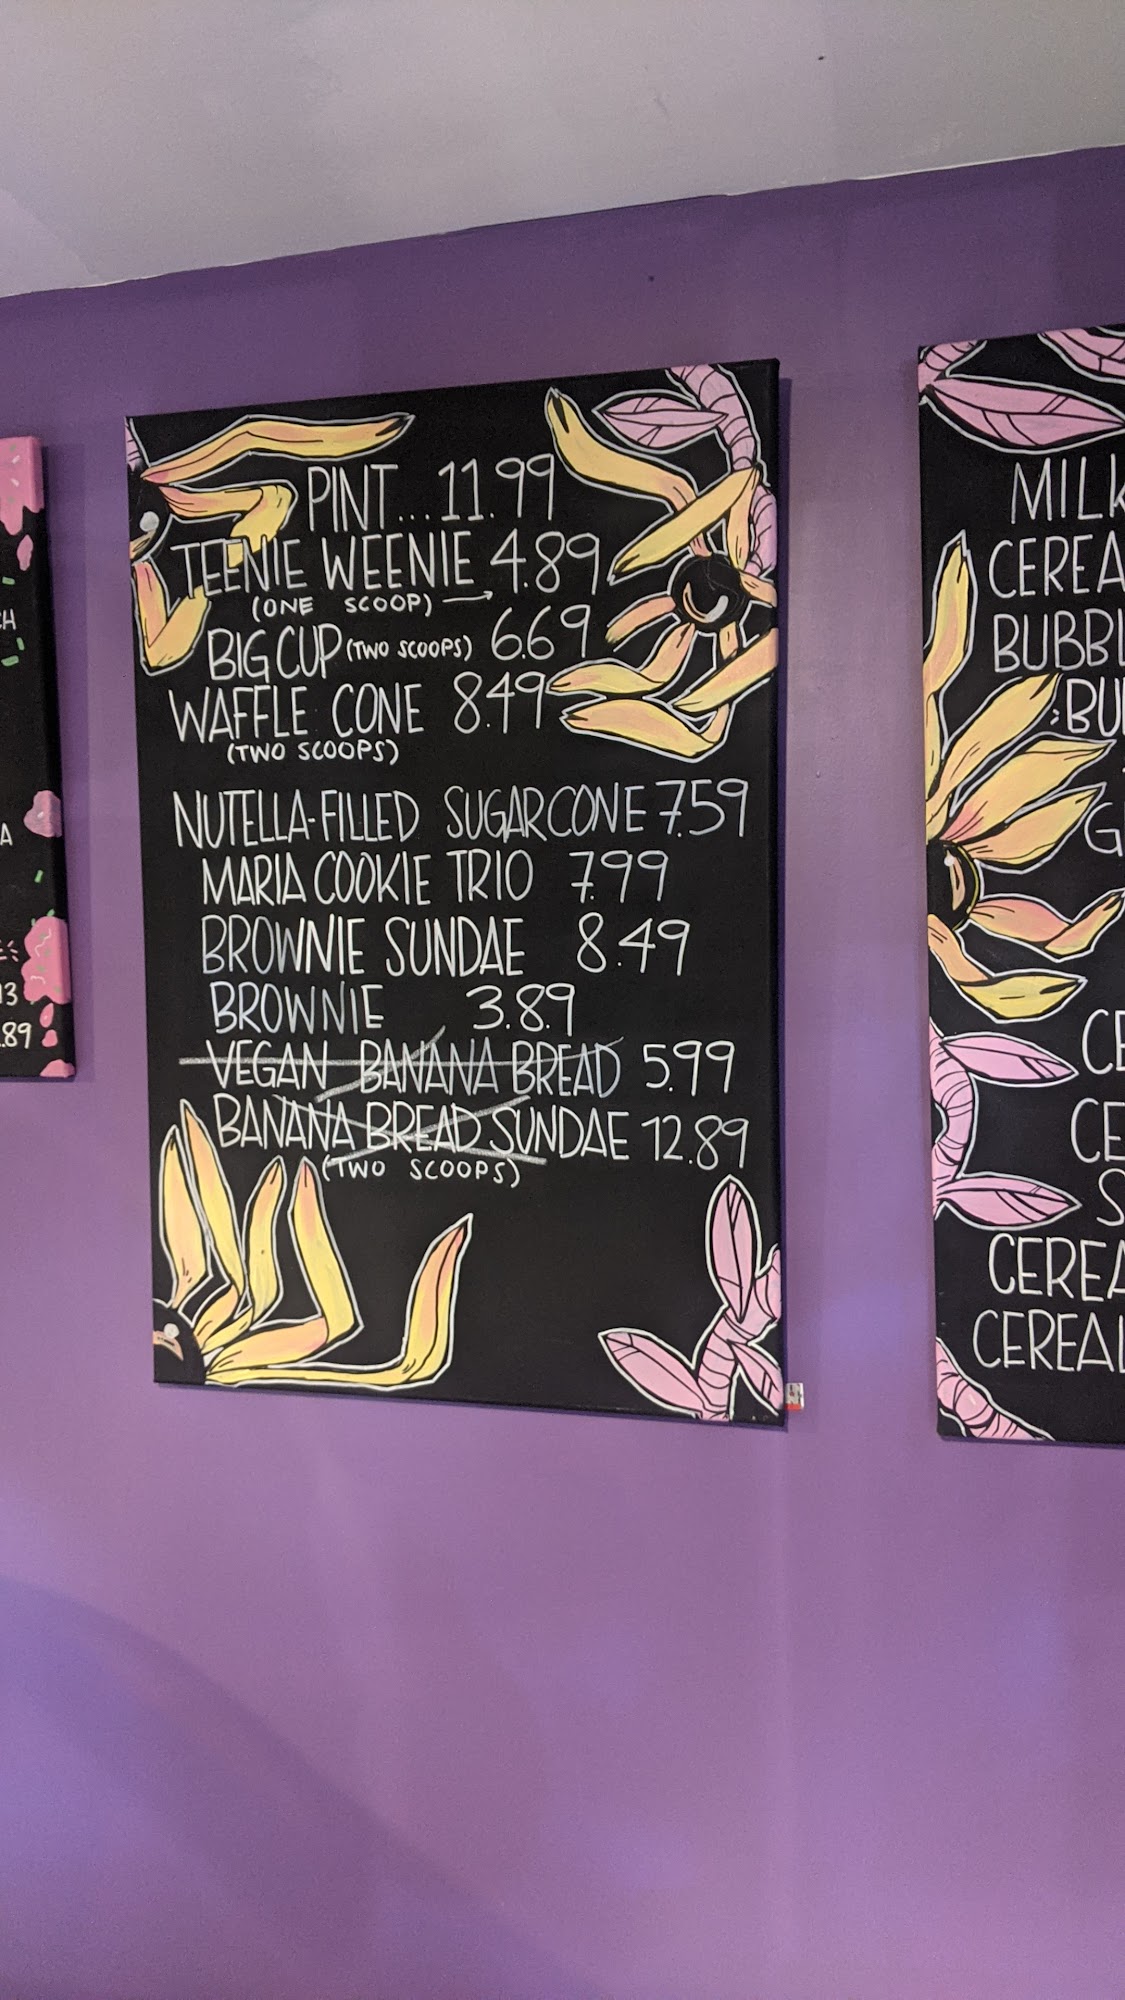 PINT... 11.99
TEENIE WEENIE 4.89
(ONE SCOOP) →
BIG CUP (TWO SCOOPS) 6.69
WAFFLE CONE 8.49
(TWO SCOOPS)
NUTELLA-FILLED SUGAR CONE 7.59
MARIA COOKIE TRIO 7.99
BROWNIE SUNDAE 8.49
BROWNIE 3.89
VEGAN BANANA BREAD 5.99
BANANA BREAD SUNDAE 12.89
(TWO SCOOPS)
MILK
CEREA
BUBBL
BU
G
CE
CE
S
CEREA
CEREAL
CH
A
13
.89